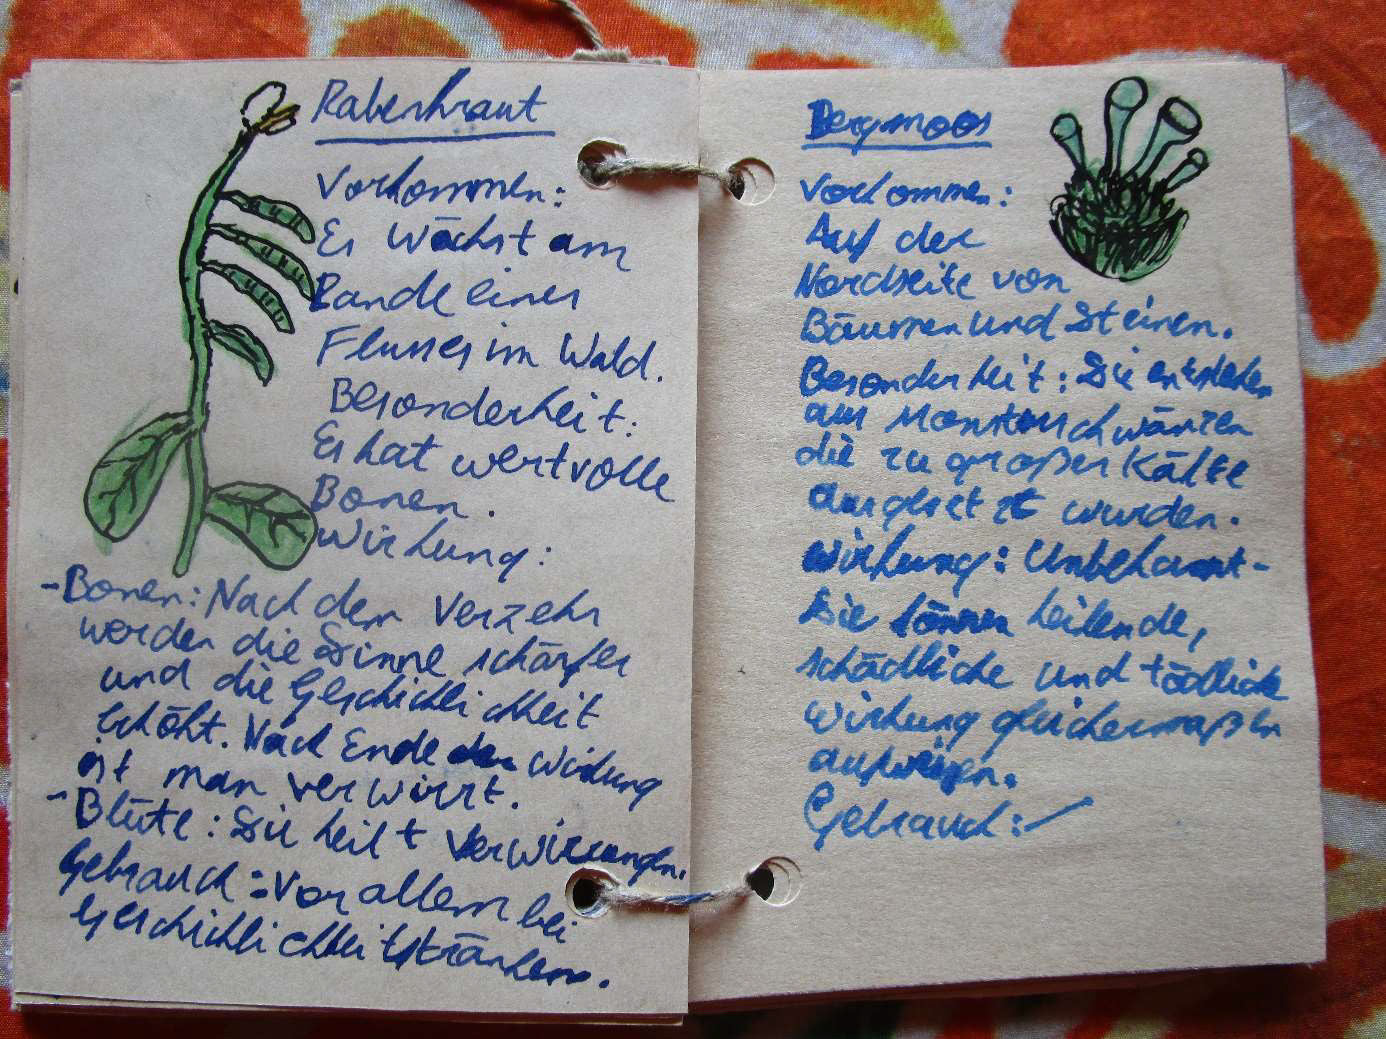 Rabenkraut
Vorkommen:
Es Wächst am
Rande eines
Flusses im Wald.
Besonderheit:
Es hat wertvolle
Bonen.
Wirkung:
-Bonen: Nach dem Verzehr
werden die Sinne schärfer
und die Geschicklichkeit
erhöht. Nach Ende der Wirkung
ist man verwirrt.
-Blüte: Sie heilt Verwirrungen.
Gebrauch: Vor allem bei
Geschicklichkeitstränken.
Bergmoos
Vorkommen:
Auf der
Nordseite von
Bäumen und Steinen.
Besonderheit: Sie entstehen
aus Monsterschwänzen
die zu großer Kälte
ausgesetzt wurden.
Wirkung: Unbekannt-
Sie können heilende,
schädliche und tödliche
Wirkung gleichermaßen
aufweisen.
Gebrauch: -